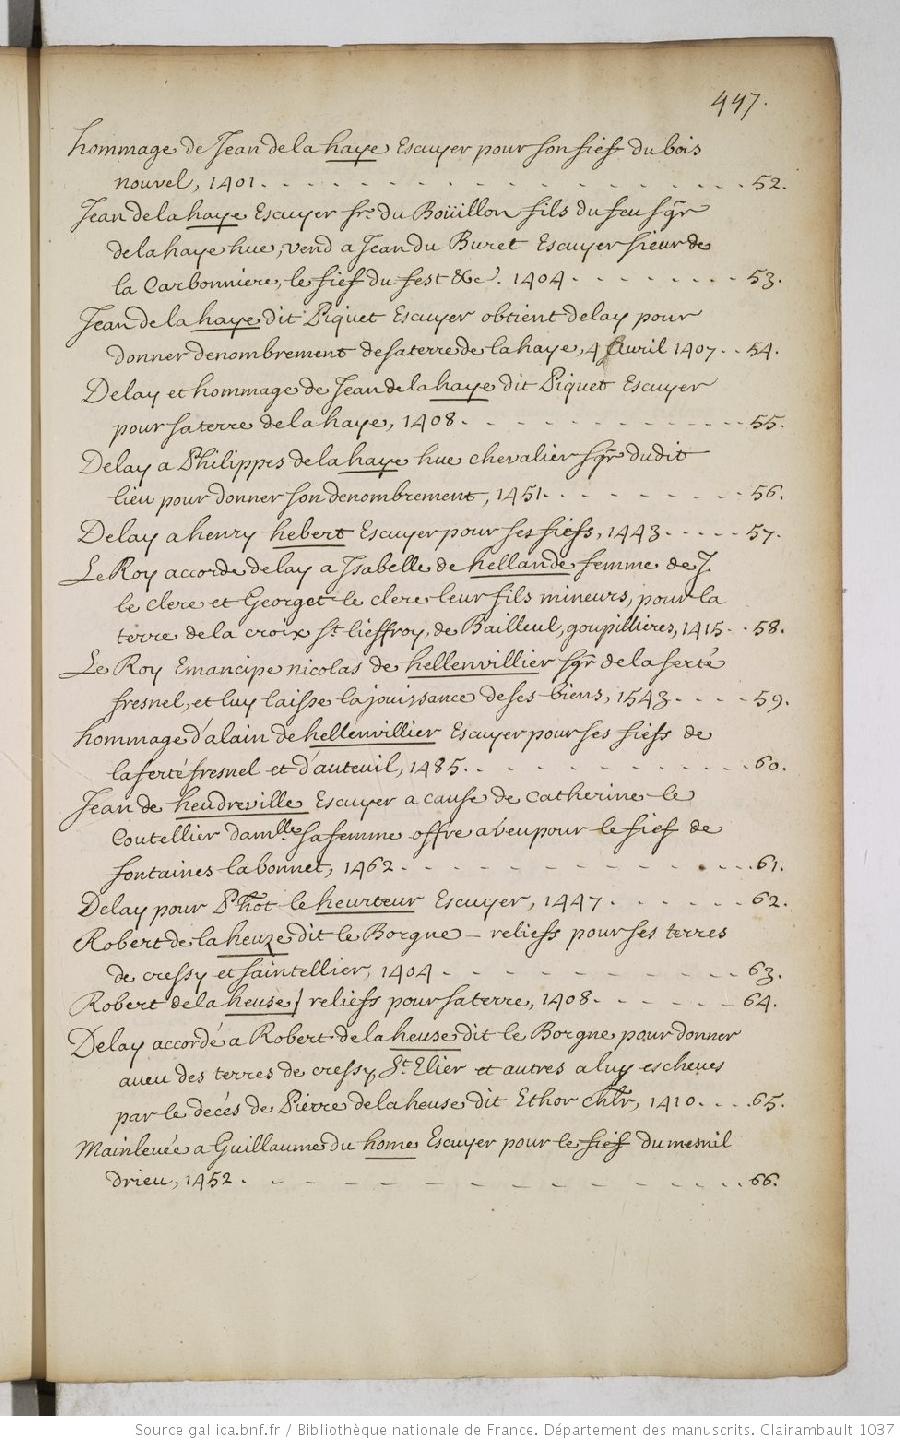 447.
hommage de Jean de la haye Escuyer pour son fief du bois
nouvel, 1401. - - - - - - - - - - - - - - 52.
Jean de la haye Escuyer sr. du Boüillon fils du feu sgr
de la haye hue, vend a Jean du Buret Escuyer sieur de
la Carbonniere, le fief du fest &c. 1404 - - - - - - - 53.
Jean de la haye dit Piquet Escuyer obtient delay pour
donner denombrement de sa terre de la haye, 4 Avril 1407. . 54.
Delay et hommage de Jean de la haye dit Piquet Escuyer
pour sa terre de la haye, 1408. - - - - - - - - - - 55.
Delay a Philippes de la haye hue chevalier sgr dudit
lieu pour donner son denombrement, 1451. - - - - - - 56.
Delay a henry hebert Escuyer pour ses fiefs, 1443. - - - - 57.
Le Roy accorde delay a Isabelle de hellande femme de J.
le clerc et Georget le clerc leur fils mineurs, pour la
terre de la croix St lieffroy, de Bailleul, goupillieres, 1415 - . 58.
Le Roy Emancipe nicolas de hellenvillier sgr de la ferté
fresnel, et luy laisse la jouissance de ses biens, 1543 - - - - 59.
hommage d'alain de hellenvillier Escuyer pour ses fiefs de
la ferté fresnel et d'auteuil, 1485. - - - - - - - - - 60.
Jean de heudreville Escuyer a cause de Catherine le
Coutellier damlle sa femme offre aveu pour le fief de
fontaines la bonnet, 1462 - - - - - - - - - - - 61.
Delay pour Phot le heurteur Escuyer, 1447 - - - - - - 62.
Robert de la heuze dit le Borgne - reliefs pour ses terres
de cressy et saintellier, 1404 - - - - - - - - - 63.
Robert de la heuse / reliefs pour sa terre, 1408 - - - - - 64.
Delay accordé a Robert de la heuse dit le Borgne pour donner
aveu des terres de cressy, St. Elier et autres a luy escheues
par le decés de Pierre de la heuse dit Ethor chlr, 1410. . . . 65.
Mainlevée a Guillaume du home Escuyer pour le fief du mesnil
drieu, 1452 - - - - - - - - - - - - - - - 66.
Source gallica.bnf.fr / Bibliothèque nationale de France. Département des manuscrits. Clairambault 1037